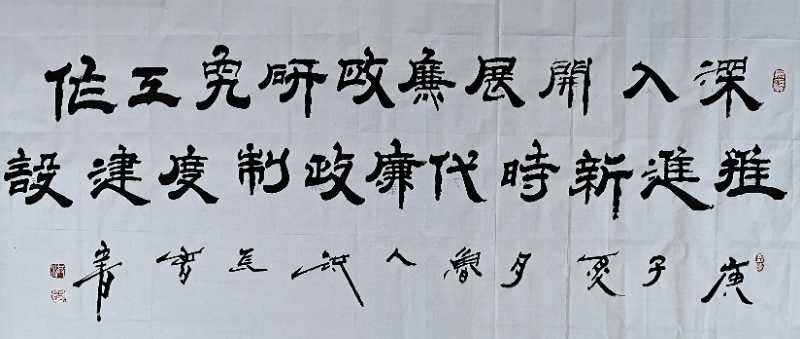 深入開展廉政研究工作
推進新時代廉政制度建設
庚子夏月魯人